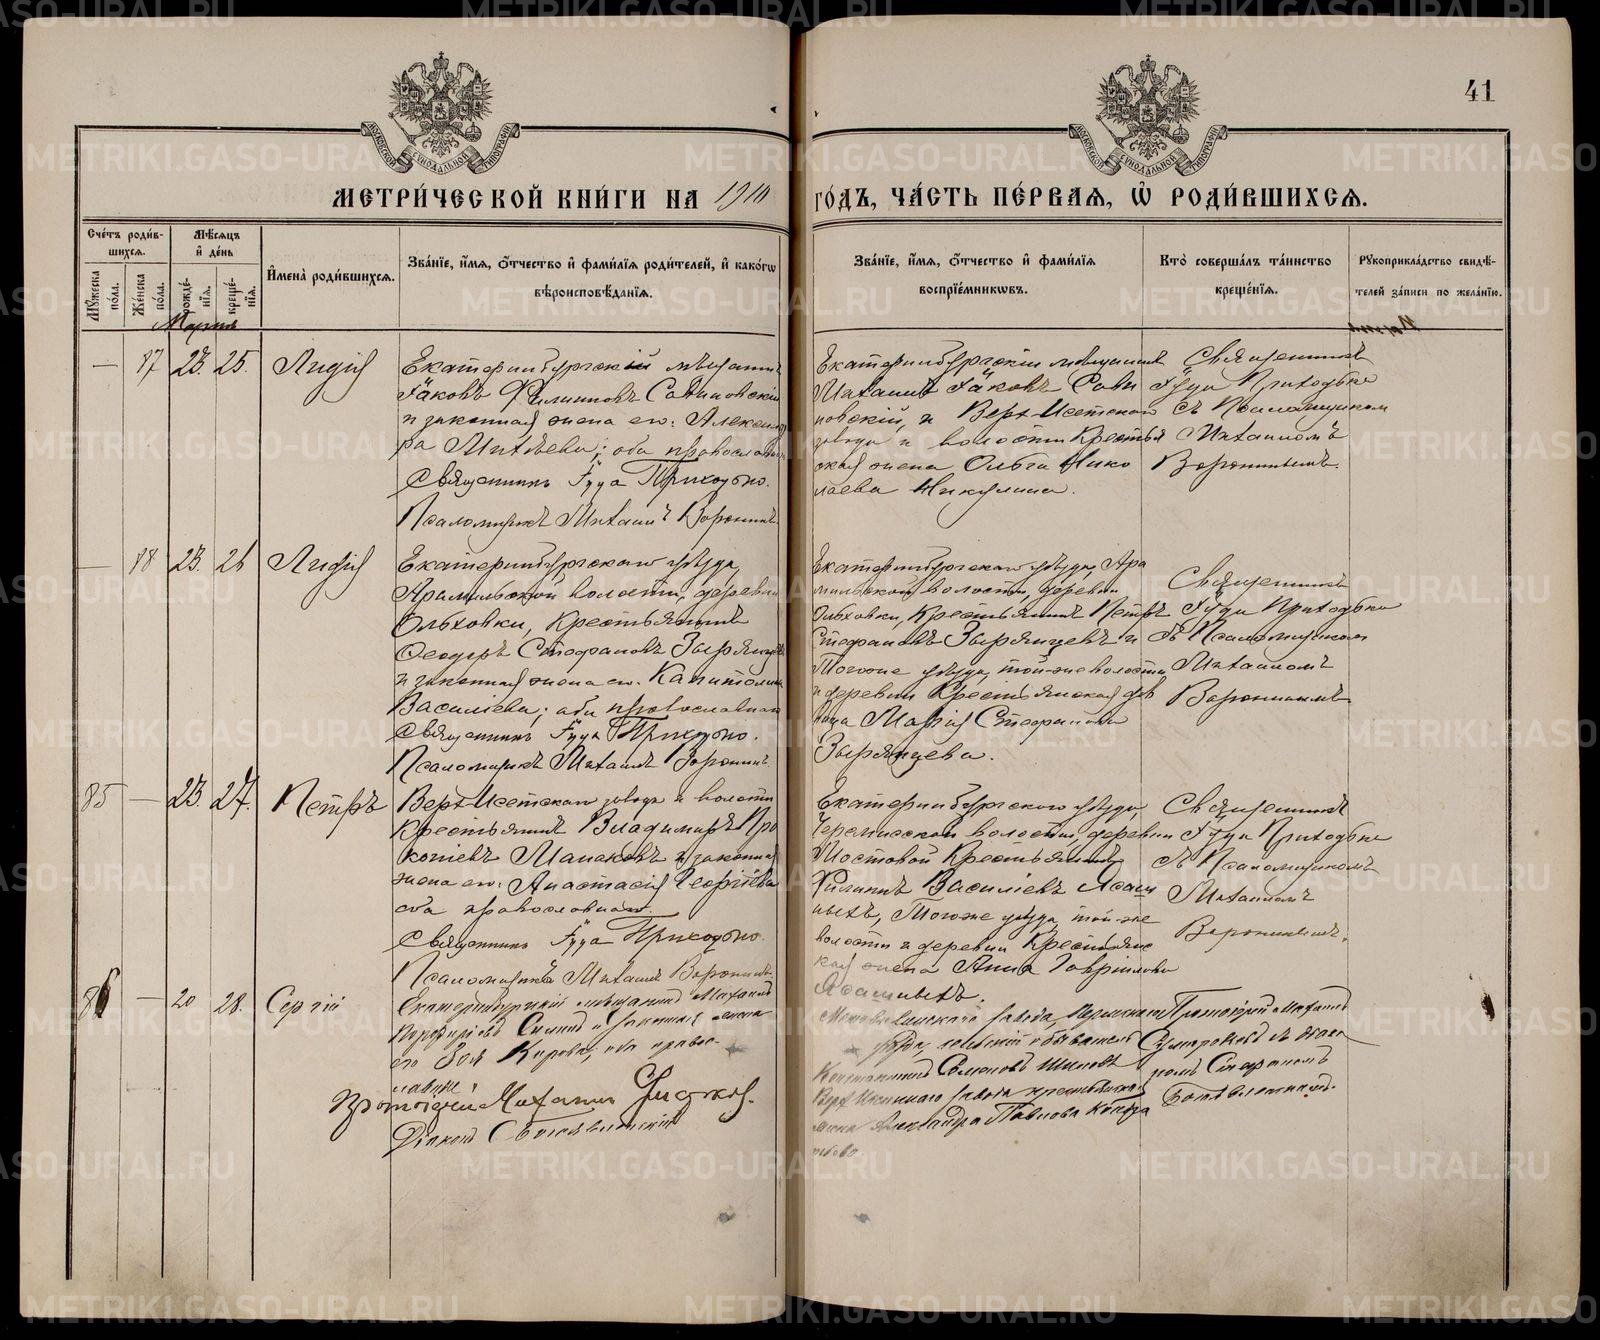 41
МОСКОВСКОЙ СѴНОДАЛЬНОЙ ТИПОГРАФІИ
МОСКОВСКОЙ СѴНОДАЛЬНОЙ ТИПОГРАФІИ
МЕТРИ́ЧЕСКОЙ КНИ́ГИ НА 1910
ГО́ДЪ, ЧА́СТЬ ПЕ́РВАЯ, Ѡ҆ РОДИ́ВШИХСЯ.
Сче́тъ роди́в-
шихся.
Мꙋжеска по́ла.
Же́нска по́ла.
Мѣ́сяцъ
и҆ де́нь
рожде́-
нїя.
креще́-
нїя.
И҆мена̀ роди́вшихся.
Зва́нїе, и҆́мя, ѻ҆́тчество и҆ фами́лїя роди́телей, и҆ како́гѡ
вѣроисповѣ́данїя.
Зва́нїе, и҆́мя, ѻ҆́тчество и҆ фами́лїя
воспрїе́мникѡвъ.
Кто̀ соверша́лъ та́инство
креще́нїя.
Рꙋкоприкла́дство свидѣ́-
телей за́писи по жела́нїю.
Мартъ
— 87 23. 25. Лидія
Екатеринбургскій мѣщанинъ
Іаковъ Филипповъ Савиновскій
и законная жена его: Александ
ра Матѳеева; оба православн
Священникъ Іуда Приходько.
Псаломщикъ Михаилъ Воронинъ
Екатеринбургскіи мѣщанинъ
Михаилъ Іаковъ Сави
новскій, и Верхъ-Исетскаго
завода и волости Крестья
ская жена Ольга Нико
лаева Никулина.
Священникъ
Іуда Приходько
съ Псаломщикомъ
Михаиломъ
Воронинымъ.
— 88 23. 26 Лидія
Екатеринбургскаго уѣзда,
Арамильской волости, деревни
Ольховки, Крестьянинъ
Ѳеодоръ Стефановъ Зырянцевъ
и законная жена его: Капитолина
Василіева; оба православнаго
Священникъ Іуда Приходько.
Псаломщикъ Михаилъ Воронинъ.
Екатеринбургскаго уѣзда, Ара
мильской волости, деревни
Ольховки, Крестьянинъ Петръ
Стефановъ Зырянцевъ и
Того-же уѣзда, той-же волости
и деревни Крестьянская дѣ
вица Марія Стефанова
Зырянцева.
Священникъ
Іуда Приходько
съ Псаломщикомъ
Михаиломъ
Воронинымъ
85 — 23. 27. Петръ
Верхъ-Исетскаго завода и волости
Крестьянинъ Владимиръ Про
копіевъ Манаковъ и законная
жена его: Анастасія Георгіева
оба православнаго.
Священникъ Іуда Приходько.
Псаломщикъ Михаилъ Воронинъ.
Екатеринбургскаго уѣзда,
волости, деревни
Мостовой Крестьянинъ
Филиппъ Василіевъ
Того-же уѣзда, той-же
волости и деревни Крестьянс
кая жена Анна Гавріилова
Священникъ
Іуда Приходько
съ Псаломщикомъ
Михаиломъ
Воронинымъ.
86 — 20 28. Сергій
Екатеринбургскій мѣщанинъ Михаилъ
и законная жена
его Зоя Карпова, оба право-
славные
Протоіерей Михаилъ
Діаконъ С
завода Пермской
губерн, сельскій обыватель
Константинъ Семеновъ Шиловъ
завода крестьянская
жена Александра Павлова
Протоіерей Михаилъ
съ діако
номъ Стефаномъ